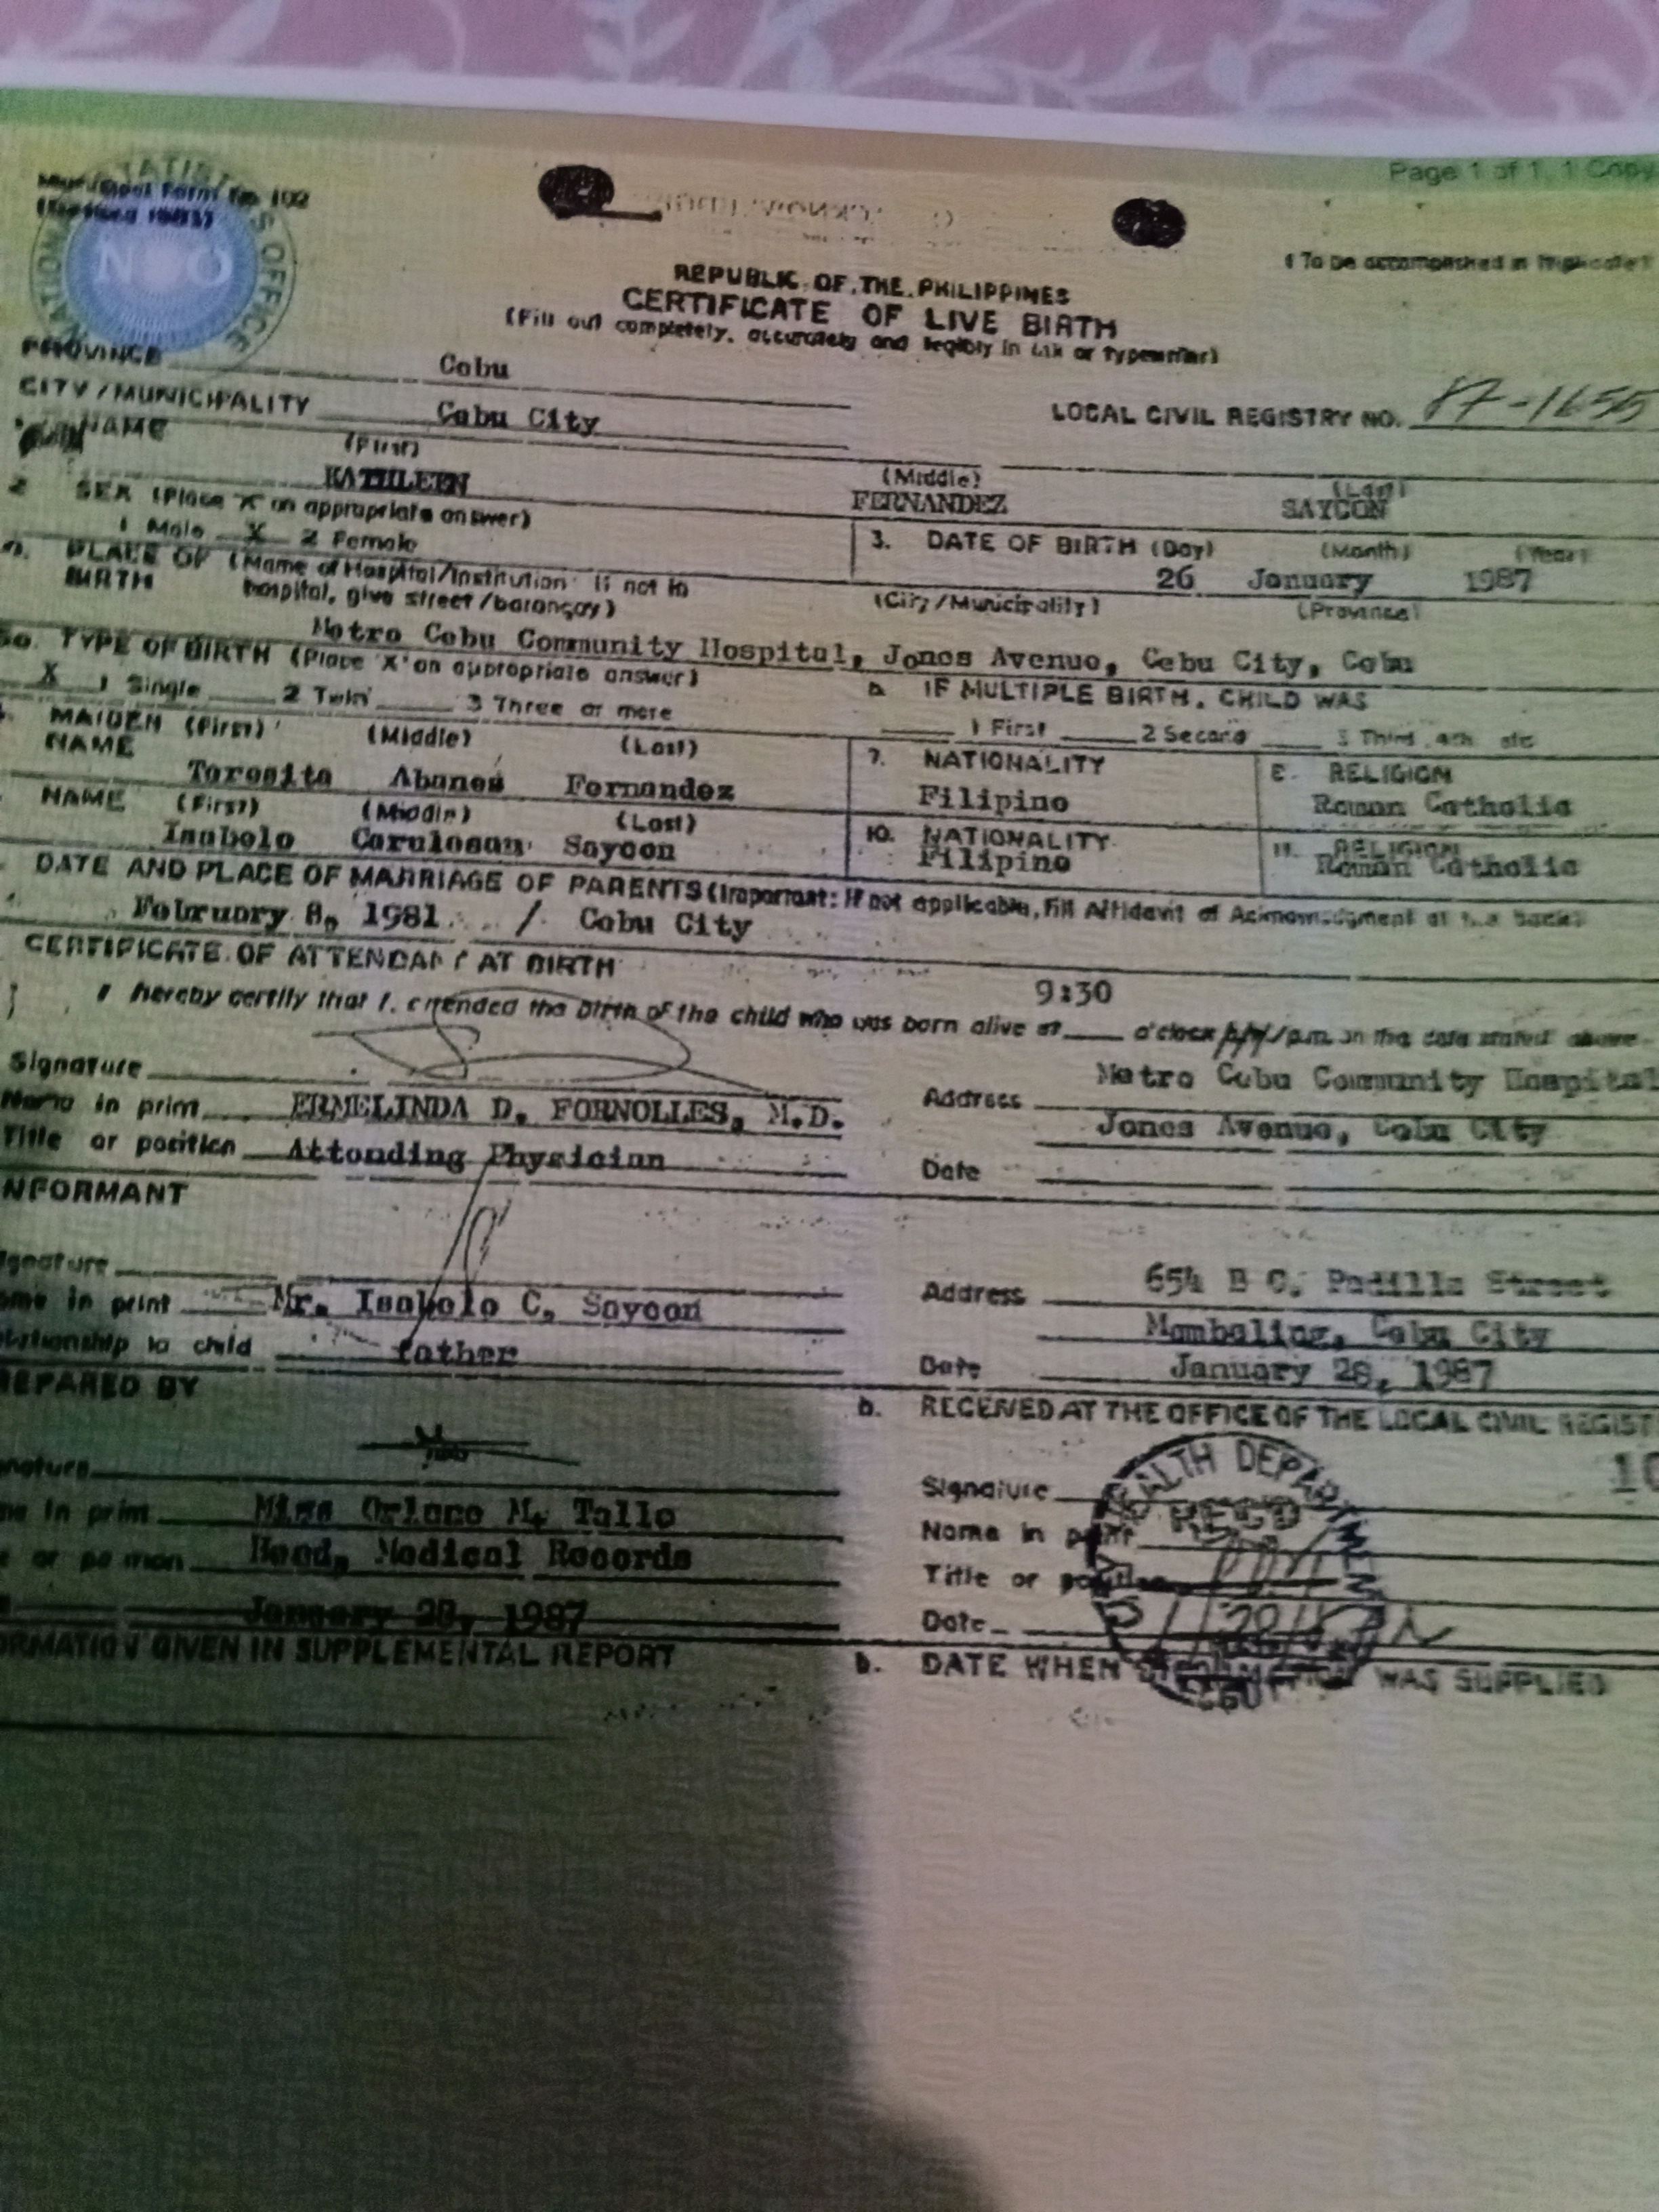 Page 1 of 1, 1 Copy
Municipal Form No. 102
NSO
( To be accomplished in Triplicate )
REPUBLIC OF THE PHILIPPINES
CERTIFICATE OF LIVE BIRTH
(Fill out completely, accurately and legibly in ink or typewriter)
PROVINCE Cebu
CITY/MUNICIPALITY Cebu City
LOCAL CIVIL REGISTRY NO. 87-1655
NAME (First) (Middle) (Last)
KATHLEEN FERNANDEZ SAYCON
2 SEX (Place 'X' on appropriate answer)
1 Male X 2 Female
3. DATE OF BIRTH (Day) (Month) (Year)
26 January 1987
PLACE OF BIRTH (Name of Hospital/Institution if not in hospital, give street/barangay) (City/Municipality) (Province)
Metro Cebu Community Hospital, Jones Avenue, Cebu City, Cebu
TYPE OF BIRTH (Place 'X' on appropriate answer)
X 1 Single 2 Twin 3 Three or more
b IF MULTIPLE BIRTH, CHILD WAS
1 First 2 Second 3 Third, 4th etc
MAIDEN NAME (First) (Middle) (Last)
Teresita Abanes Fernandez
7. NATIONALITY
Filipino
8. RELIGION
Roman Catholic
NAME (First) (Middle) (Last)
Isabelo Saycon
10. NATIONALITY
Filipino
11. RELIGION
Roman Catholic
DATE AND PLACE OF MARRIAGE OF PARENTS (Important: If not applicable, fill Affidavit of Acknowledgment at the back)
February 8, 1981 / Cebu City
CERTIFICATE OF ATTENDANT AT BIRTH
I hereby certify that I attended the birth of the child who was born alive at 9:30 o'clock /p.m. on the date stated above
Signature
Name in print ERMELINDA D. FORNOLLES, M.D.
Title or position Attending Physician
Address Metro Cebu Community Hospital
Jones Avenue, Cebu City
Date
INFORMANT
Signature
Name in print Mr. Isabelo C. Saycon
Relationship to child father
Address 654 B C. Padilla Street
Mambaling, Cebu City
Date January 28, 1987
PREPARED BY
Signature
Name in print Miss M. Tallo
Head, Medical Records
January 28, 1987
b. RECEIVED AT THE OFFICE OF THE LOCAL CIVIL REGIST
Signature
Name in print
Title or position
Date
HEALTH DEPARTMENT
REC'D
INFORMATION GIVEN IN SUPPLEMENTAL REPORT
b. DATE WHEN INFORMATION WAS SUPPLIED